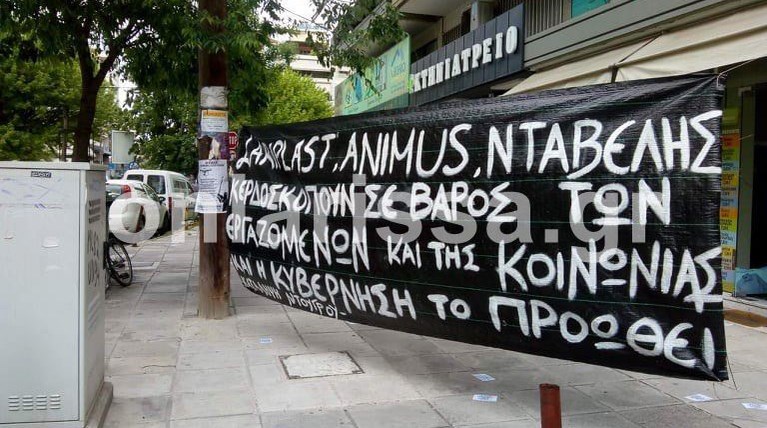 ΚΤΗΝΙΑΤΡΕΙΟ
ΣΑΝΙPLAST, ANIMUS, ΝΤΑΒΕΛΗΣ
ΚΕΡΔΟΣΚΟΠΟΥΝ ΣΕ ΒΑΡΟΣ ΤΩΝ
ΕΡΓΑΖΟΜΕΝΩΝ ΚΑΙ ΤΗΣ ΚΟΙΝΩΝΙΑΣ
ΚΑΙ Η ΚΥΒΕΡΝΗΣΗ ΤΟ ΠΡΟΩΘΕΙ
onlarissa.gr